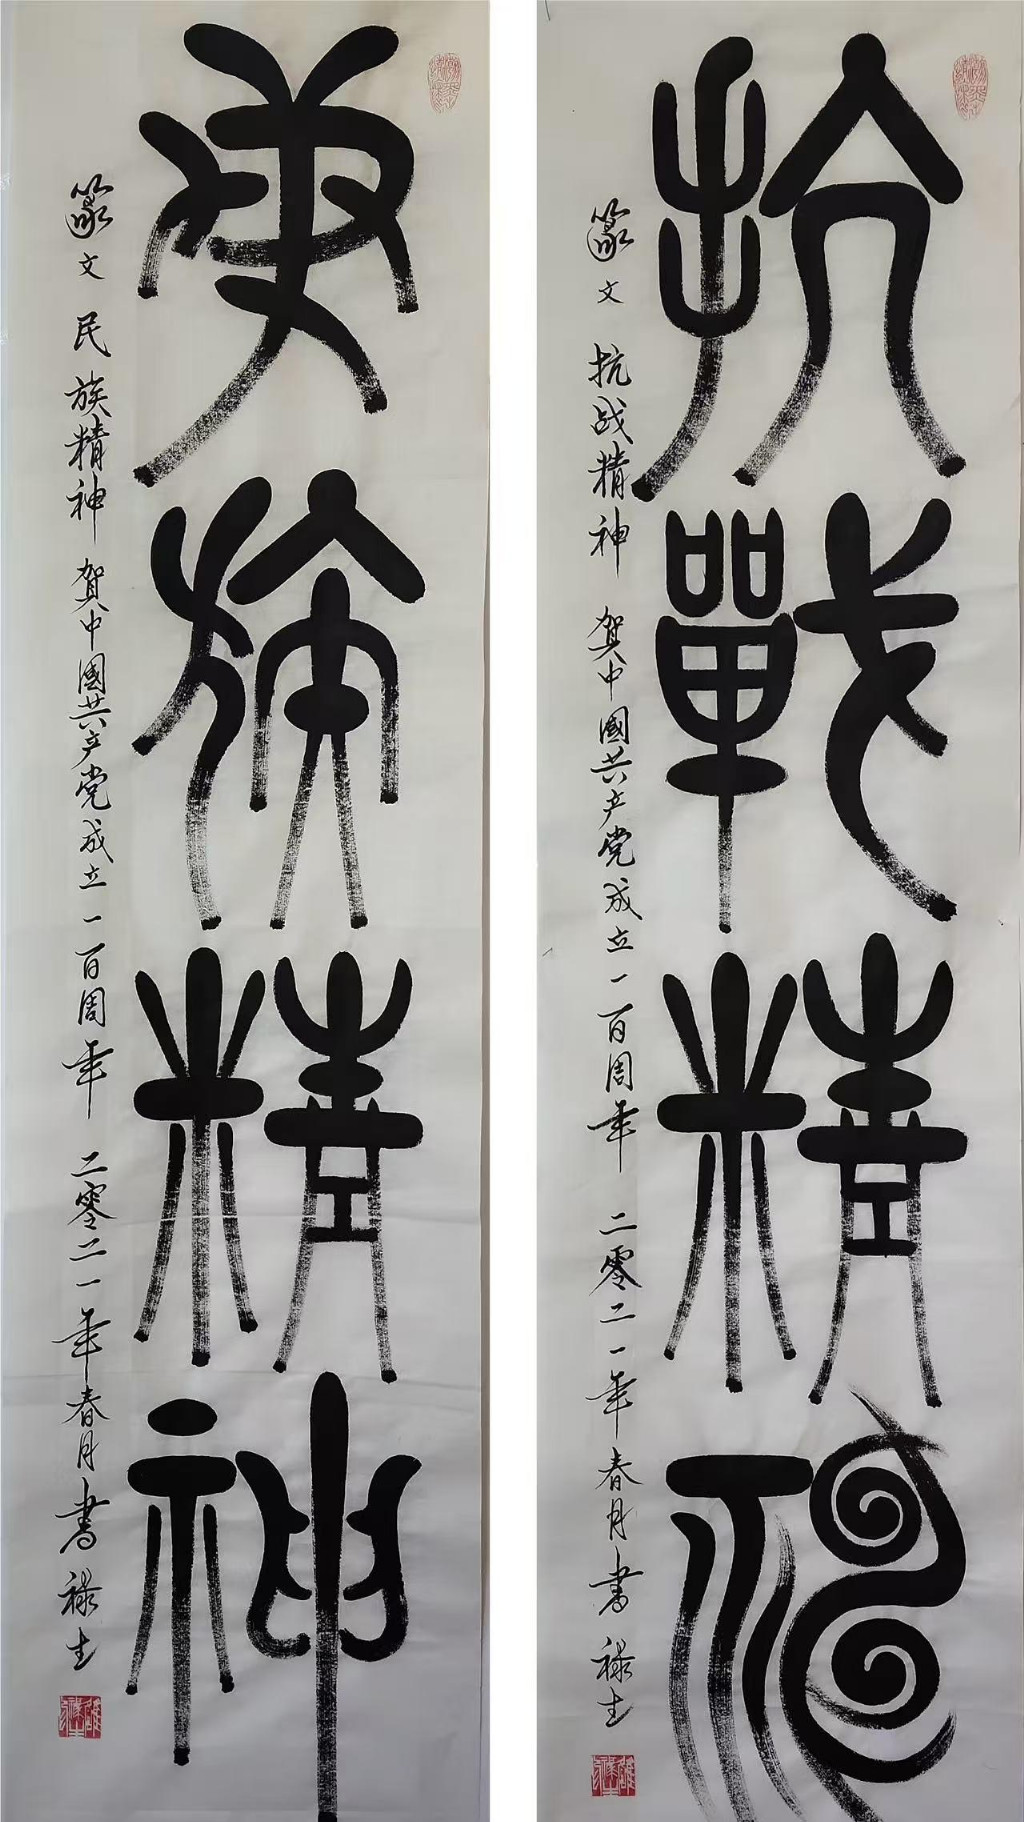 抗戰精神
篆文 抗战精神 贺中國共产党成立一百周年 二零二一年春月書 禄生
民族精神
篆文 民族精神 贺中國共产党成立一百周年 二零二一年春月書 禄生